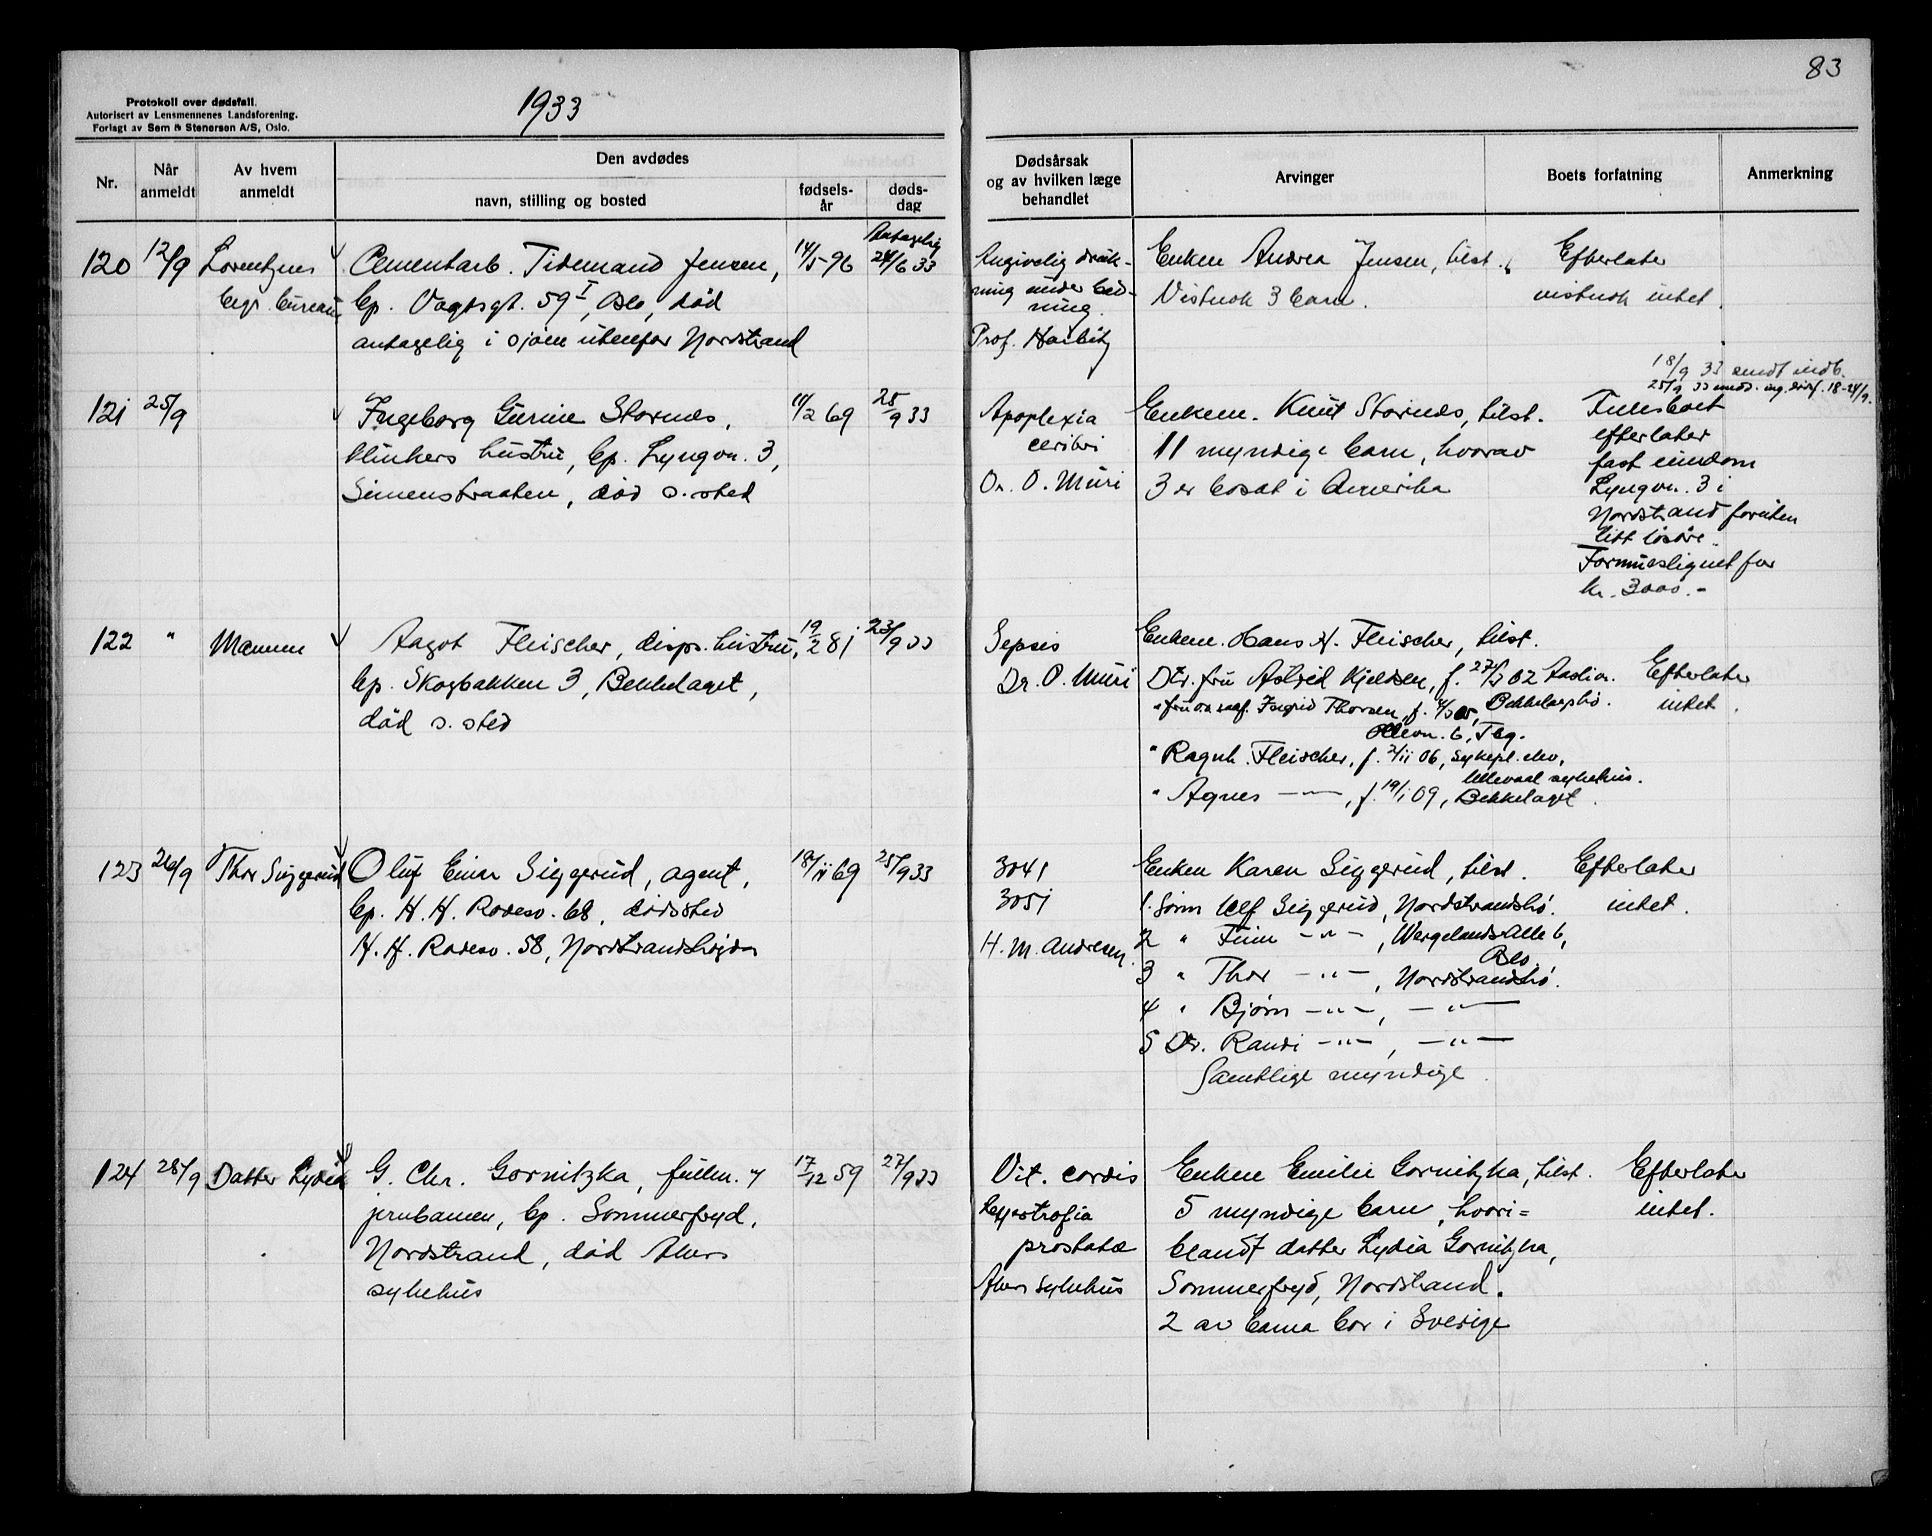 83
Protokoll over dødsfall.
Autorisert av Lensmennenes Landsforening.
Forlagt av Sem & Stenersen A/S, Oslo.
1933
Nr.
Når anmeldt
Av hvem anmeldt
Den avdødes
navn, stilling og bosted
fødsels-år
døds-dag
Dødsårsak og av hvilken læge behandlet
Arvinger
Boets forfatning
Anmerkning
120 12/9 Lorentzens
begr. bureau
Cementarb. Tidemand Jensen,
bp. Vogtsgt. 59 I, Oslo, død
antagelig i sjøen utenfor Nordstrand
14/5-96
Antagelig
24/6 33
Angivelig druk-
ning under bad-
ning.
Prof. Harbitz
Enken Andrea Jensen, tilst.
Vistnok 3 barn.
Efterlater
vistnok intet.
18/9 33 sendt indb.
121 25/9
Ingeborg Gurine Stornes,
bp. Lyngvn. 3,
Simenstraaten, død s. sted
11/2 69
25/9 33
Apoplexia
ceribri
Dr. O. Muri
Enkem. Knut Stornes, tilst.
11 myndige barn, hvorav
3 er bosat i Amerika
Fellesboet
efterlater
fast eiendom
Lyngvn. 3 i
Nordstrand foruten
litt løsøre.
Formueslignet for
kr. 3000.-
122 " Mannen
Aagot Fleischer, disp. hustru,
bp. Skogbakken 3, Bekkelaget,
død s. sted
19/2 81
23/9 33
Sepsis
Dr. O. Muri
Enkem. Hans H. Fleischer, tilst.
Dtr. fru Astrid Kjeldsen, f.
Bekkelagshø.
Ingrid Thorsen, f.
6, Tbg.
" Ragnh. Fleischer, f. 2/11 06, sykepl. elev,
Ullevaal sykehus.
" Agnes —"—, f. 19/1 09, Bekkelaget.
Efterlater
intet.
123 26/9 Thor Siggerud
Oluf Einar Siggerud, agent,
bp. H. H. Rodesv. 68, dødssted
H. H. Rodesv. 58, Nordstrandshøgda
18/11 69
25/9 33
3041
3051
H. M. Andresen.
Enken Karen Siggerud, tilst.
1. Sønn Ulf Siggerud, Nordstrandshø.
2 " Finn —"—, Wergelands Alle 6,
Oslo
3 " Thor —"—, Nordstrandshø.
4 " Bjørn —"—, —"—
5 Dtr. Randi —"—, —"—
Samtlige myndige.
Efterlater
intet.
124 28/9 Datter Lydia
G. Chr. Gornitzka, fullm. v/
jernbanen, bp. Sommerfryd,
Nordstrand, død Akers
sykehus
17/12 59
27/9 33
Vit. cordis
hypertrofia
prostatæ
Akers Sykehus
Enken Emilie Gornitzka, tilst.
5 myndige barn, hvori=
blandt datter Lydia Gornitzka,
Sommerfryd, Nordstrand.
2 av barna bor i Sverige
Efterlater
intet.